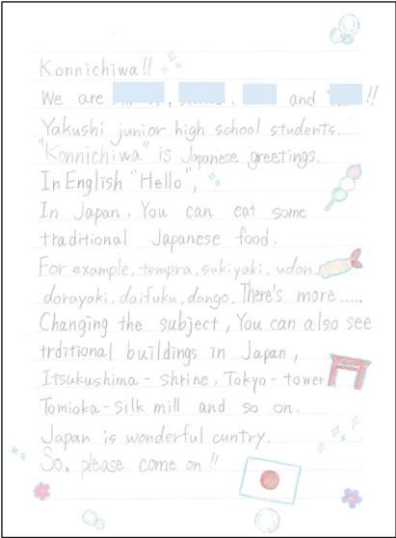 Konnichiwa!!
We are , , and !!
Yakushi junior high school students.
"Konnichiwa" is Japanese greetings.
In English "Hello",
In Japan, You can eat some
traditional Japanese food.
For example, tempra, sukiyaki, udon,
dorayaki, daifuku, dango. There's more.....
Changing the subject, You can also see
trditional buildings in Japan,
Itsukushima-shrine, Tokyo-tower
Tomioka-silk mill and so on.
Japan is wonderful cuntry.
So, please come on!!